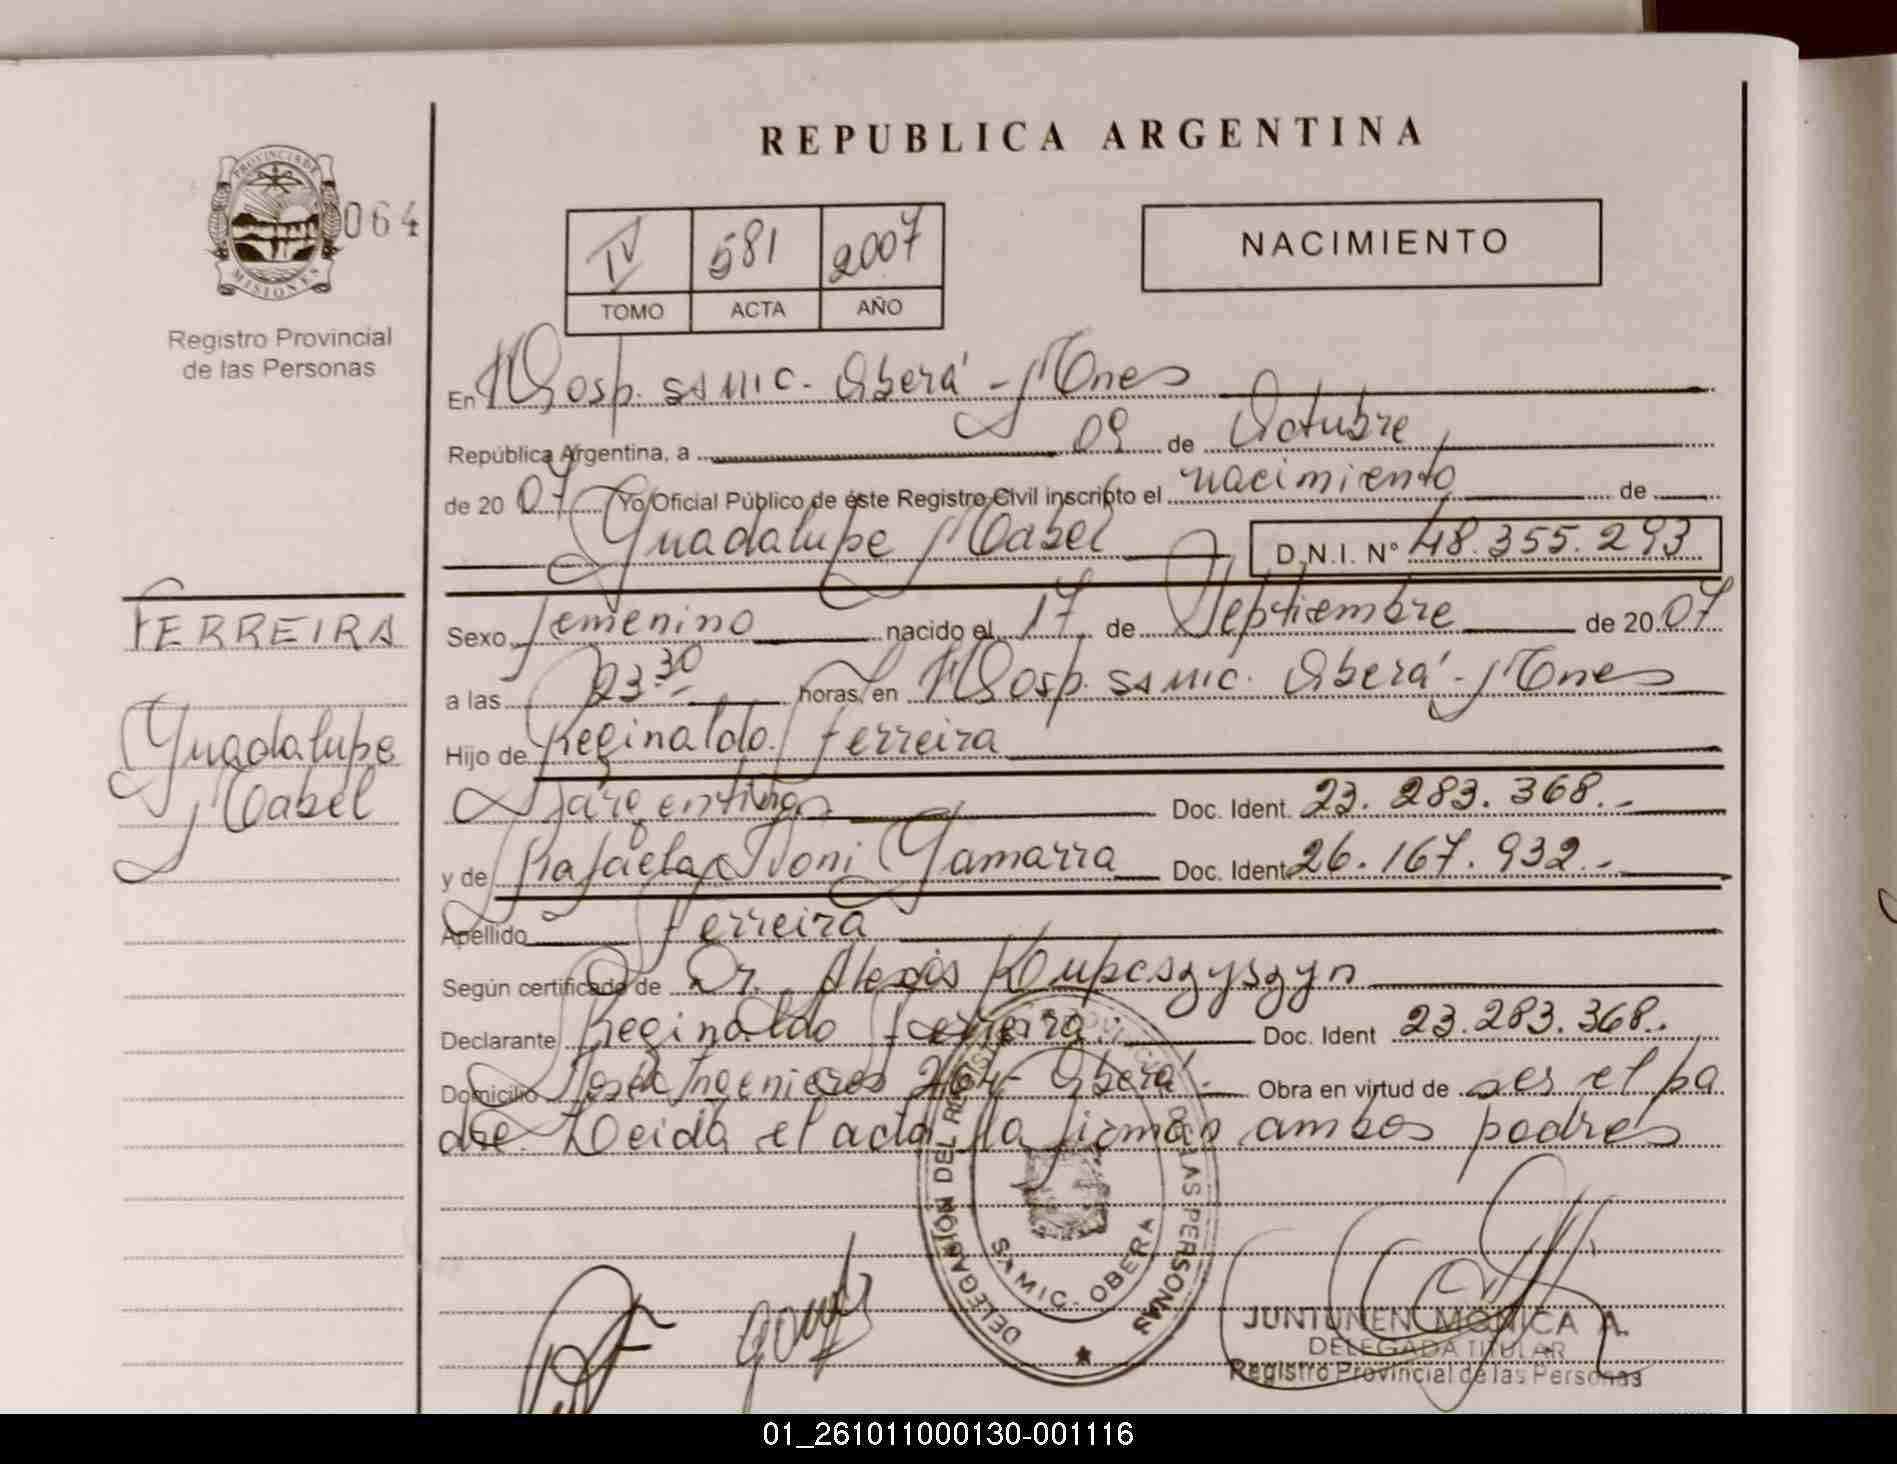 REPUBLICA ARGENTINA
PROVINCIA DE
MISIONES
064
Registro Provincial
de las Personas
IV 581 2007
TOMO ACTA AÑO
NACIMIENTO
En Hosp. SAMIC. Oberá - Mnes
República Argentina, a 09 de Octubre
de 2007 Yo Oficial Público de éste Registro Civil inscripto el nacimiento de
Guadalupe Mabel D.N.I. N° 48.355.293
FERREIRA
Guadalupe
Mabel
Sexo femenino nacido el 17 de Septiembre de 2007
a las 23:30 horas, en Hosp. SAMIC. Oberá - Mnes
Hijo de Reginaldo Ferreira
Argentinos Doc. Ident. 23.283.368.-
y de Rafaela Noni Gamarra Doc. Ident. 26.167.932.-
Apellido Ferreira
Según certificado de Dr. Alexis Kupcszyszyn
Declarante Reginaldo Ferreira. Doc. Ident 23.283.368.
Domicilio José Ingenieros 264 - Oberá.- Obra en virtud de ser el pa
dre. Leida el acta la firman ambos padres
DELEGACIÓN DEL REGISTRO PROVINCIAL DE LAS PERSONAS
SAMIC - OBERA
JUNTUNEN MONICA A.
DELEGADA TITULAR
Registro Provincial de las Personas
01_261011000130-001116